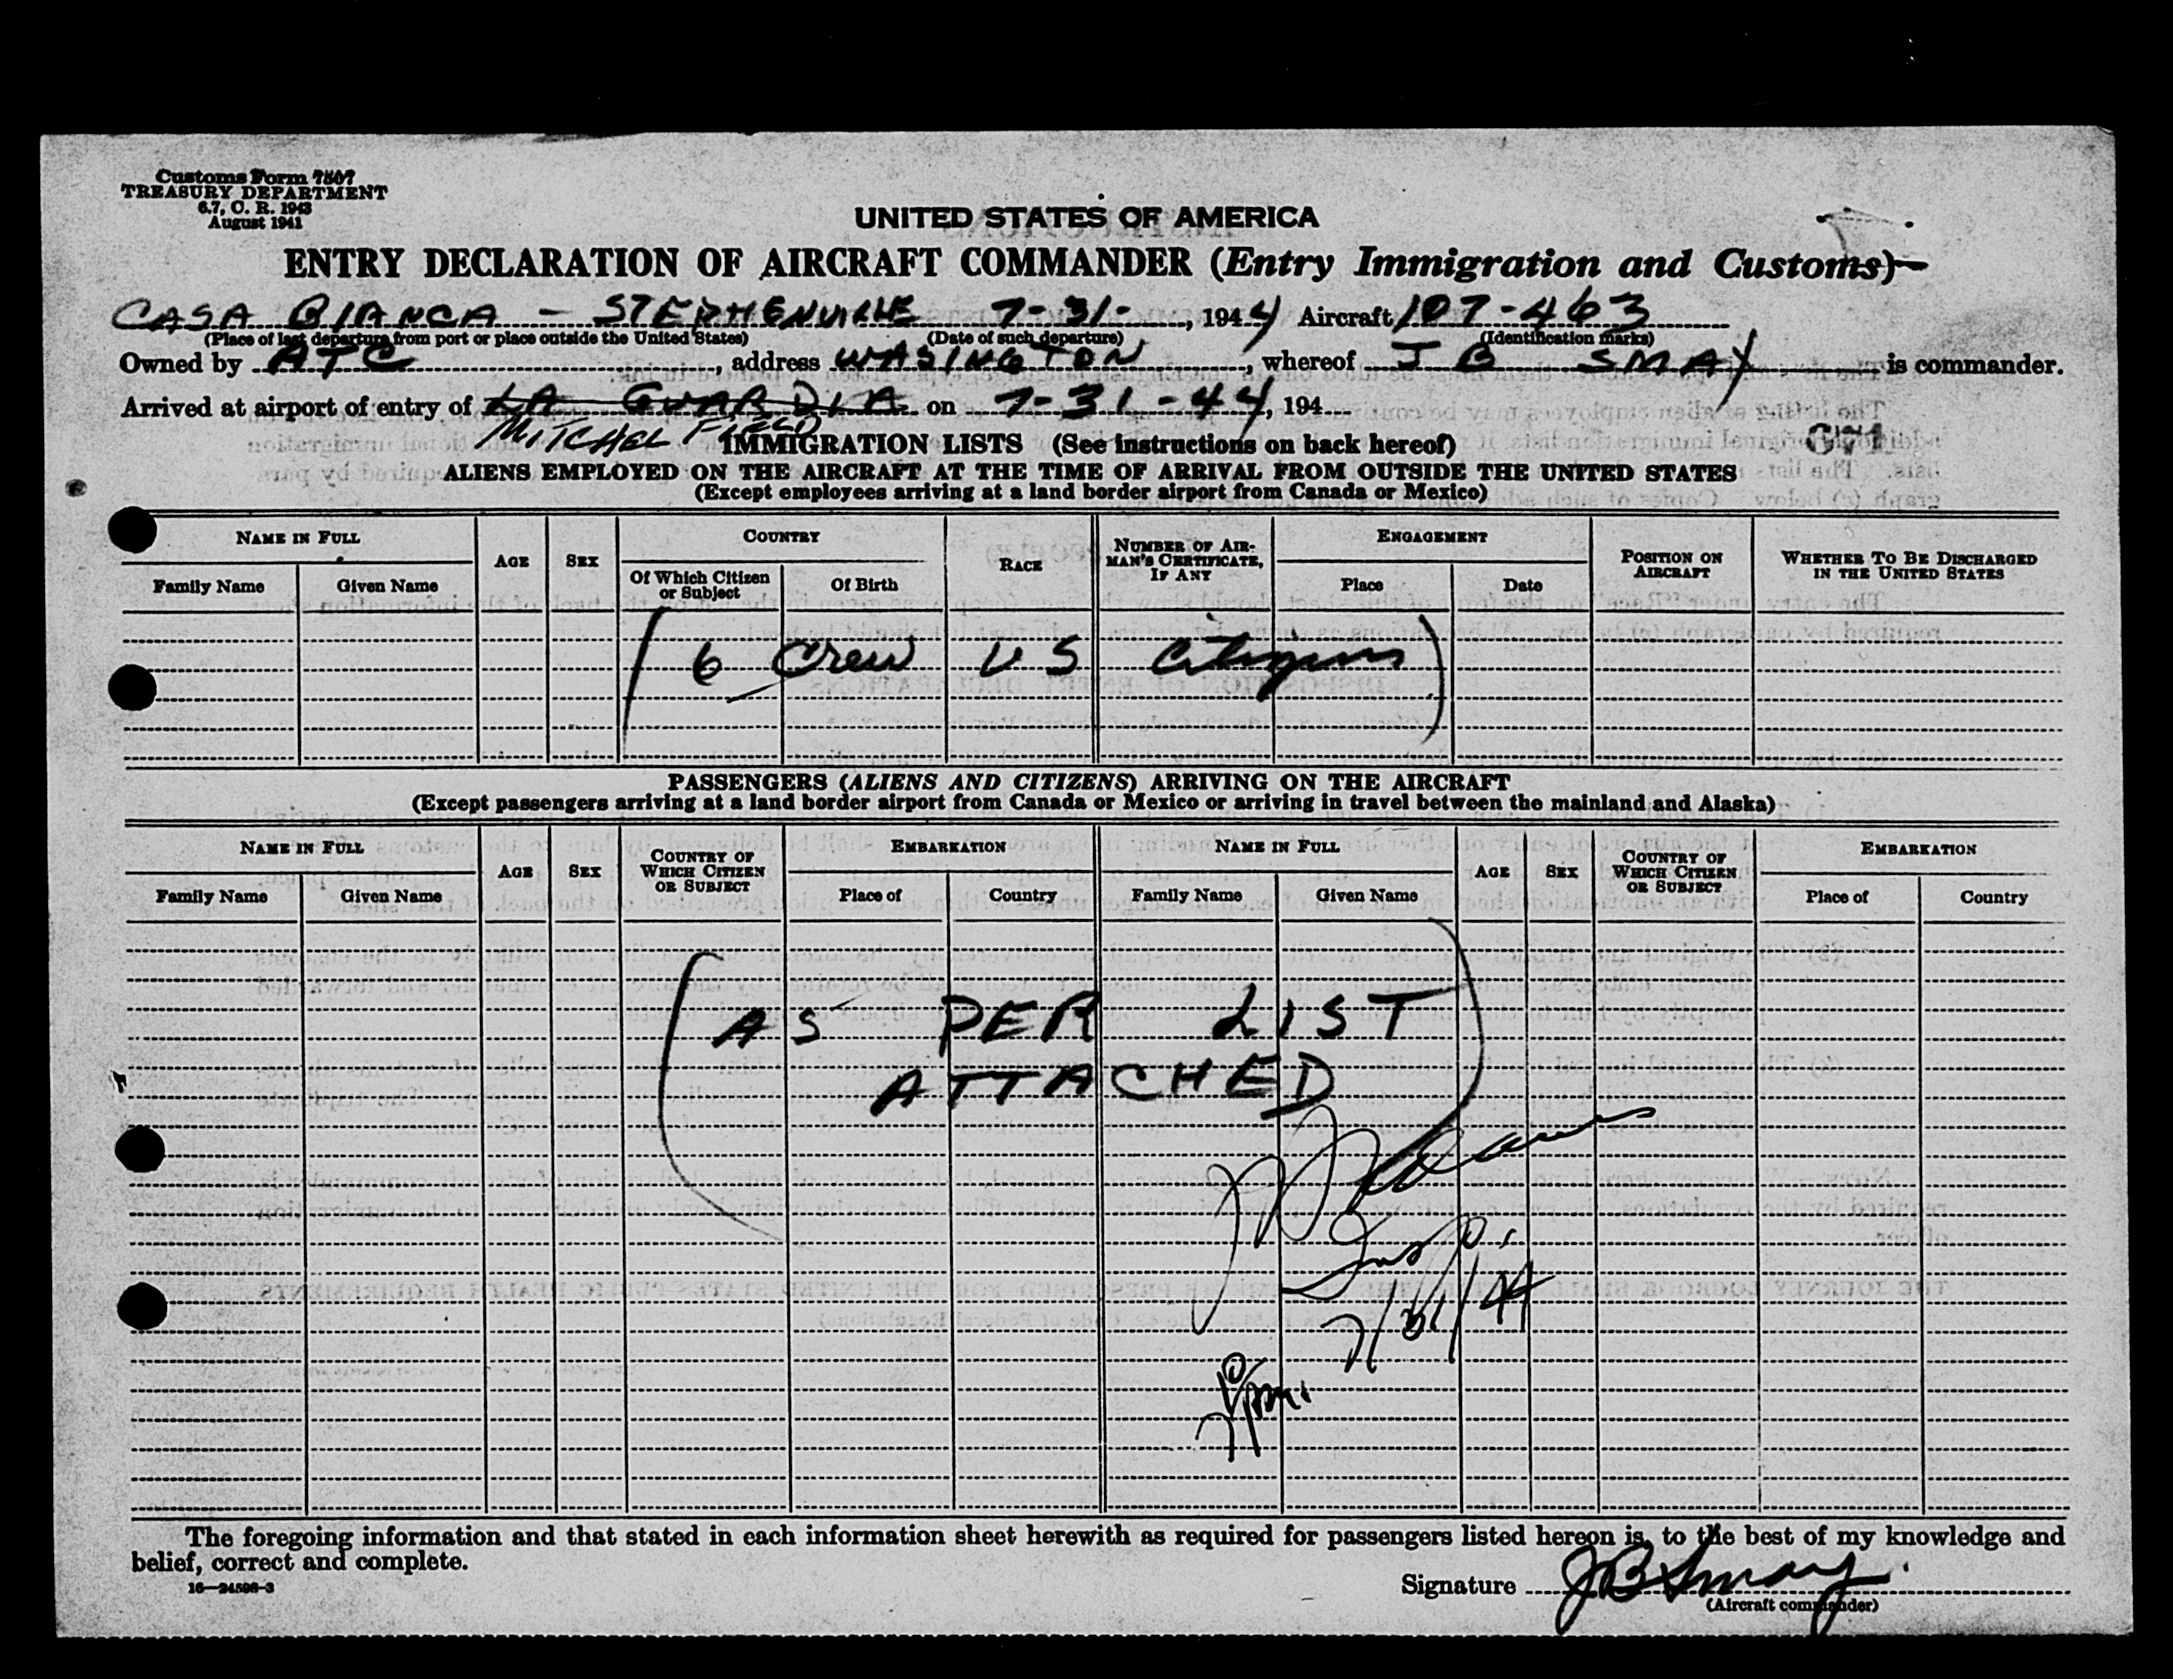 Customs Form 7507
TREASURY DEPARTMENT
6.7, C. R. 1943
August 1941
UNITED STATES OF AMERICA
ENTRY DECLARATION OF AIRCRAFT COMMANDER (Entry Immigration and Customs)
CASA BIANCA - STEPHENVILLE 7-31-, 1944 Aircraft 107-463
(Place of last departure from port or place outside the United States) (Date of such departure) (Identification marks)
Owned by ATC, address WASINGTON, whereof J B SMAY is commander.
Arrived at airport of entry of LA GUARDIA on 7-31-44, 194
MITCHEL FIELD
IMMIGRATION LISTS (See instructions on back hereof)
ALIENS EMPLOYED ON THE AIRCRAFT AT THE TIME OF ARRIVAL FROM OUTSIDE THE UNITED STATES
(Except employees arriving at a land border airport from Canada or Mexico)
NAME IN FULL AGE SEX COUNTRY RACE NUMBER OF AIRMAN'S CERTIFICATE, IF ANY ENGAGEMENT POSITION ON AIRCRAFT WHETHER TO BE DISCHARGED IN THE UNITED STATES
Family Name Given Name Of Which Citizen or Subject Of Birth Place Date
(6 Crew US Citizens)
PASSENGERS (ALIENS AND CITIZENS) ARRIVING ON THE AIRCRAFT
(Except passengers arriving at a land border airport from Canada or Mexico or arriving in travel between the mainland and Alaska)
NAME IN FULL AGE SEX COUNTRY OF WHICH CITIZEN OR SUBJECT EMBARKATION NAME IN FULL AGE SEX COUNTRY OF WHICH CITIZEN OR SUBJECT EMBARKATION
Family Name Given Name Place of Country Family Name Given Name Place of Country
(AS PER LIST
ATTACHED)
7/31/44
The foregoing information and that stated in each information sheet herewith as required for passengers listed hereon is, to the best of my knowledge and
belief, correct and complete.
16—24598-3
Signature JB Smay
(Aircraft commander)